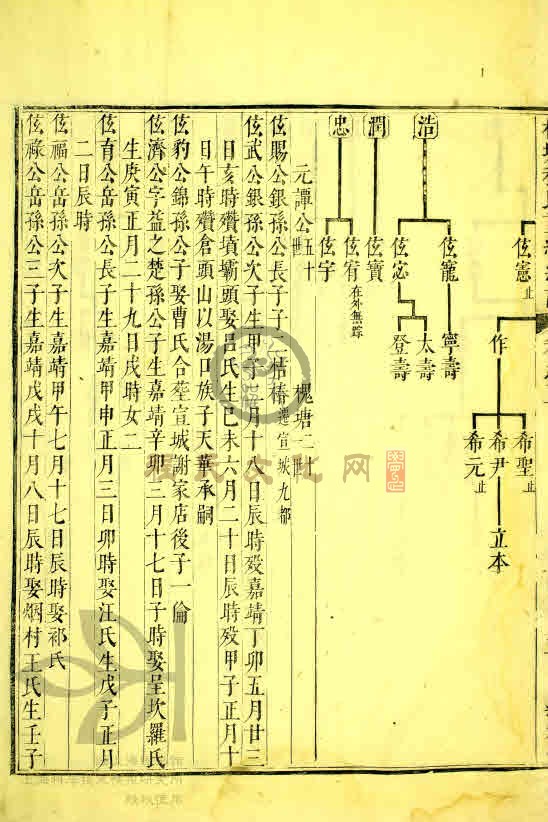 伭憲止
作
希聖止
希尹
立本
希元止
浩
伭寵
寧壽
伭宓
太壽
登壽
潤
伭寶
忠
伭宥在外無踪
伭宇
元譚公五十世
槐塘二十世
伭賜公銀孫公長子子二桔椿遷宣城九都
伭武公銀孫公次子生甲子 月十八日辰時殁嘉靖丁卯五月廿三
日亥時殯墳壩頭娶呂氏生巳未六月二十日辰時殁甲子正月十
日午時殯倉頭山以湯口族子天華承嗣
伭豹公錦孫公子娶曹氏合塟宣城謝家店後子一倫
伭濟公字益之楚孫公子生嘉靖辛卯三月十七日子時娶呈坎羅氏
生庚寅正月二十九日戌時女二
伭育公岳孫公長子生嘉靖甲申正月三日卯時娶汪氏生戊子正月
二日辰時
伭福公岳孫公次子生嘉靖甲午七月十七日辰時娶祁氏
伭祿公岳孫公三子生嘉靖戊戌十月八日辰時娶烟村王氏生壬子